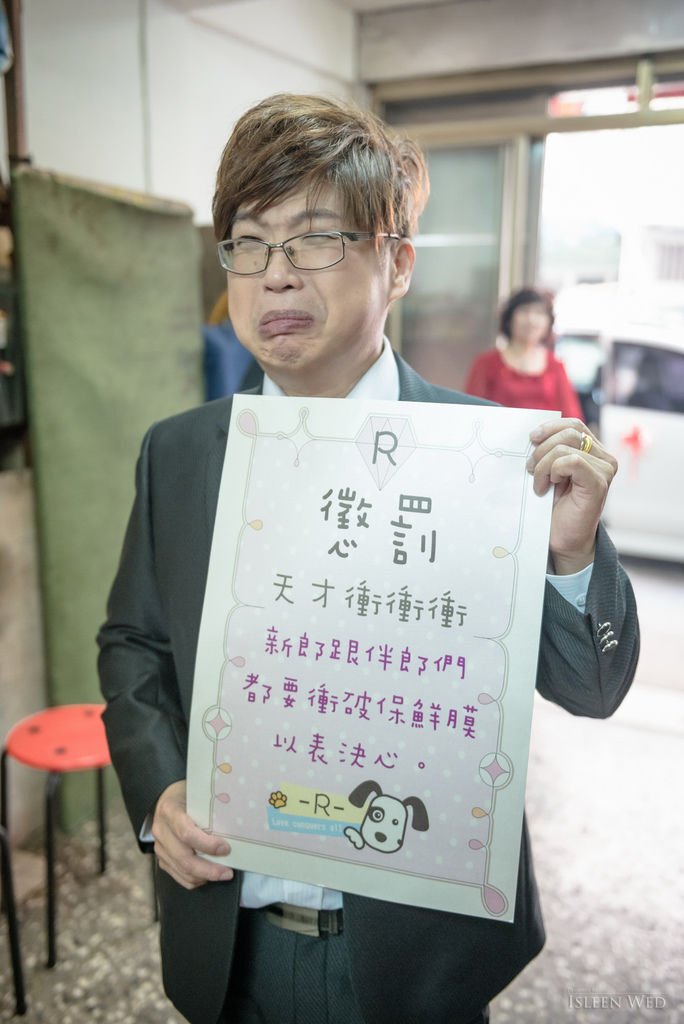 R
懲罰
天才衝衝衝
新郎跟伴郎們
都要衝破保鮮膜
以表決心。
-R-
Love conquers all
ISLEEN WED